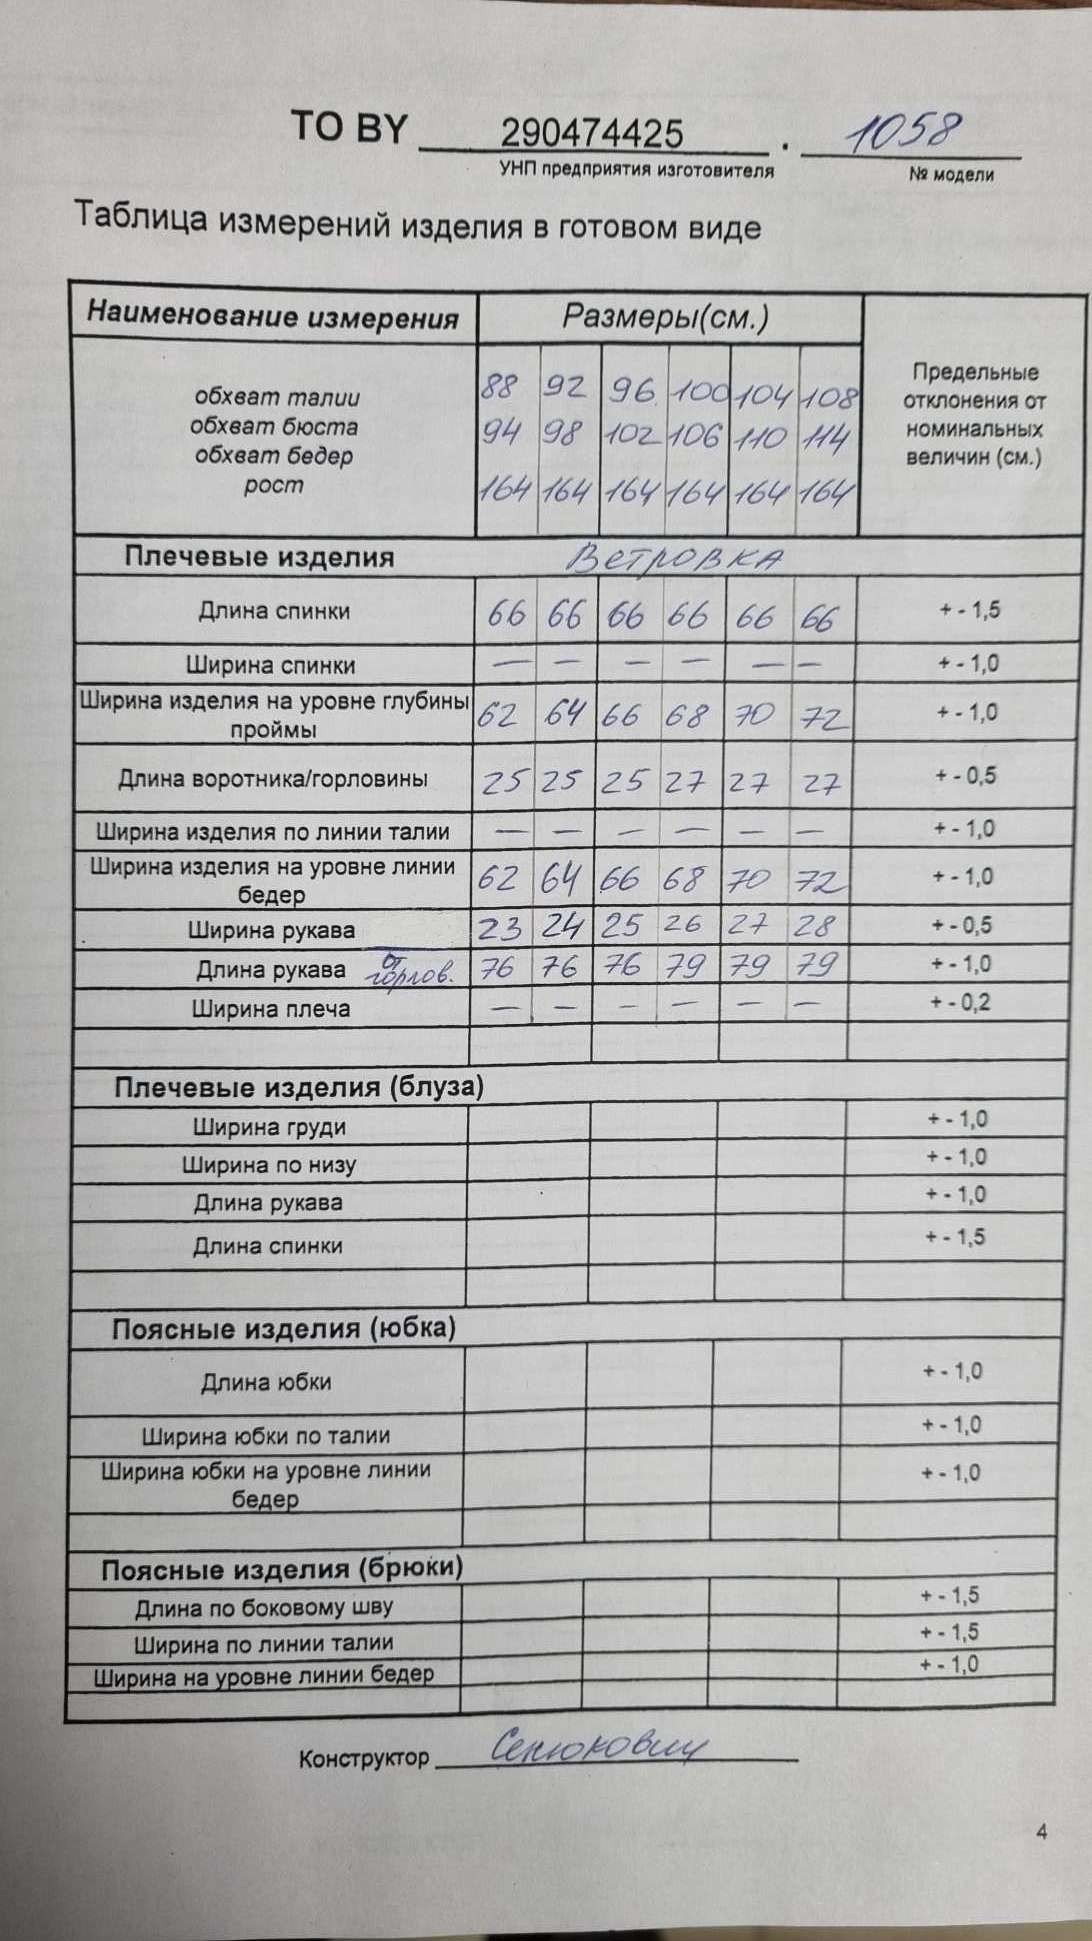 ТО BY 290474425 . 1058
УНП предприятия изготовителя № модели
Таблица измерений изделия в готовом виде
Наименование измерения Размеры(см.) Предельные отклонения от номинальных величин (см.)
обхват талии 88 92 96 100 104 108
обхват бюста 94 98 102 106 110 114
обхват бедер
рост 164 164 164 164 164 164
Плечевые изделия Ветровка
Длина спинки 66 66 66 66 66 66 + - 1,5
Ширина спинки — — — — — — + - 1,0
Ширина изделия на уровне глубины проймы 62 64 66 68 70 72 + - 1,0
Длина воротника/горловины 25 25 25 27 27 27 + - 0,5
Ширина изделия по линии талии — — — — — — + - 1,0
Ширина изделия на уровне линии бедер 62 64 66 68 70 72 + - 1,0
Ширина рукава 23 24 25 26 27 28 + - 0,5
Длина рукава от горлов. 76 76 76 79 79 79 + - 1,0
Ширина плеча — — — — — — + - 0,2
Плечевые изделия (блуза)
Ширина груди + - 1,0
Ширина по низу + - 1,0
Длина рукава + - 1,0
Длина спинки + - 1,5
Поясные изделия (юбка)
Длина юбки + - 1,0
Ширина юбки по талии + - 1,0
Ширина юбки на уровне линии бедер + - 1,0
Поясные изделия (брюки)
Длина по боковому шву + - 1,5
Ширина по линии талии + - 1,5
Ширина на уровне линии бедер + - 1,0
Конструктор Сенюкович
4